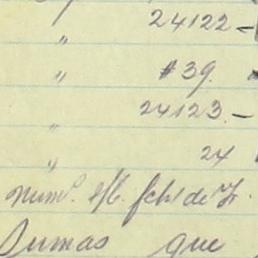 24122 -
" #39.
" 24123. -
" 24
num. s/6. fchs de Fr.
Sumas que